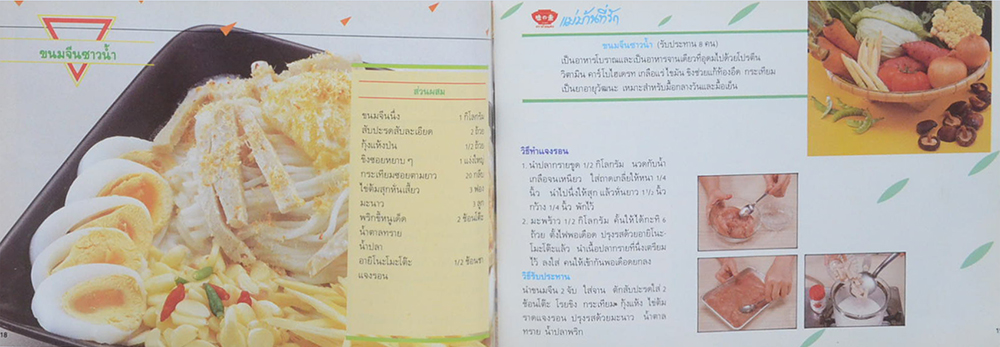 ขนมจีนซาวน้ำ
ส่วนผสม
ขนมจีนนึ่ง 1 กิโลกรัม
สับปะรดสับละเอียด 2 ถ้วย
กุ้งแห้งป่น 1/2 ถ้วย
ขิงซอยหยาบ ๆ 1 แง่งใหญ่
กระเทียมซอยตามยาว 20 กลีบ
ไข่ต้มสุกหั่นเสี้ยว 5 ฟอง
มะนาว 3 ลูก
พริกขี้หนูเด็ด 2 ช้อนโต๊ะ
น้ำตาลทราย
น้ำปลา
อายิโนะโมะโต๊ะ 1/2 ช้อนชา
แจงรอน
18
แม่บ้านที่รัก
ขนมจีนซาวน้ำ (รับประทาน 8 คน)
เป็นอาหารโบราณและเป็นอาหารจานเดียวที่อุดมไปด้วยโปรตีน
วิตามิน คาร์โบไฮเดรท เกลือแร่ ไขมัน ขิงช่วยแก้ท้องอืด กระเทียม
เป็นยาอายุวัฒนะ เหมาะสำหรับมื้อกลางวันและมื้อเย็น
วิธีทำแจงรอน
1. นำปลากรายขูด 1/2 กิโลกรัม นวดกับน้ำ
เกลือจนเหนียว ใส่ถาดเกลี่ยให้หนา 1/4
นิ้ว นำไปนึ่งให้สุก แล้วหั่นยาว 1 1/2 นิ้ว
กว้าง 1/4 นิ้ว พักไว้
2. มะพร้าว 1/2 กิโลกรัม คั้นให้ได้กะทิ 6
ถ้วย ตั้งไฟพอเดือด ปรุงรสด้วยอายิโนะ-
โมะโต๊ะแล้ว นำเนื้อปลากรายที่นึ่งเตรียม
ไว้ ลงใส่ คนให้เข้ากันพอเดือดยกลง
วิธีรับประทาน
นำขนมจีน 2 จับ ใส่จาน ตักสับปะรดใส่ 2
ช้อนโต๊ะ โรยขิง กระเทียม กุ้งแห้ง ไข่ต้ม
ราดแจงรอน ปรุงรสด้วยมะนาว น้ำตาล
ทราย น้ำปลาพริก